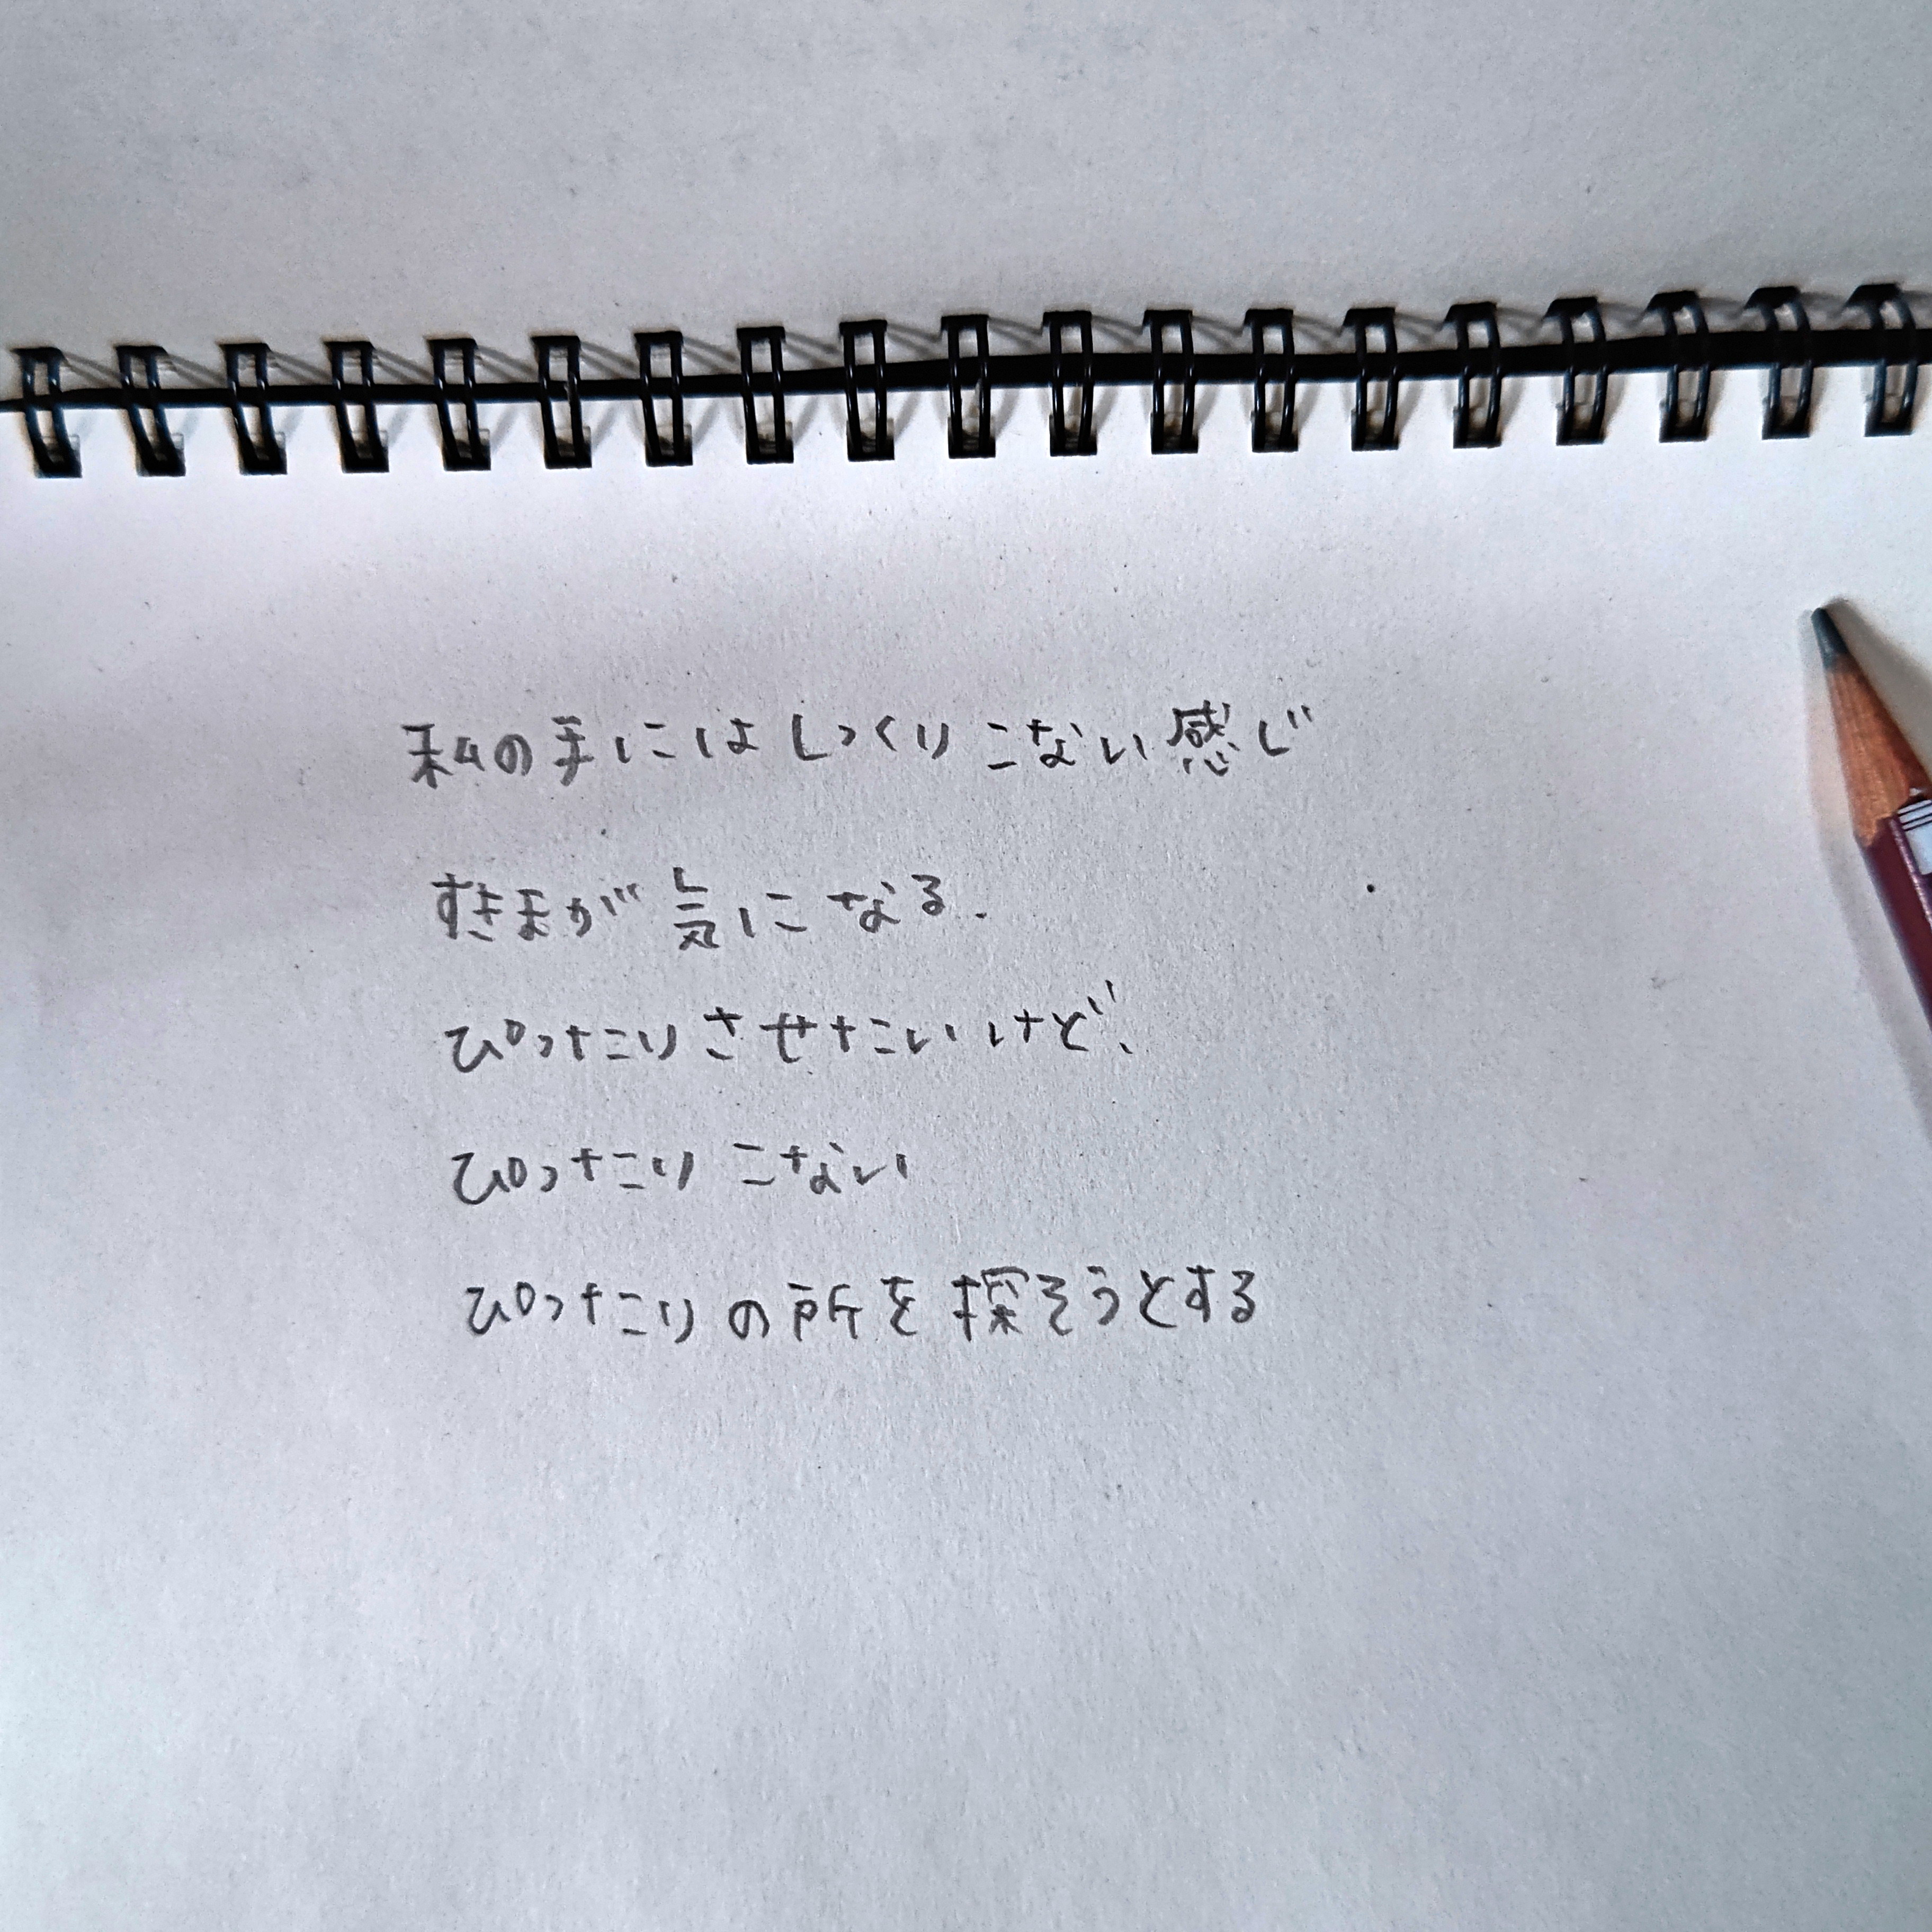 私の手にはしっくりこない感じ
すきまが気になる.
ぴったりさせたいけど、
ぴったりこない
ぴったりの所を探そうとする